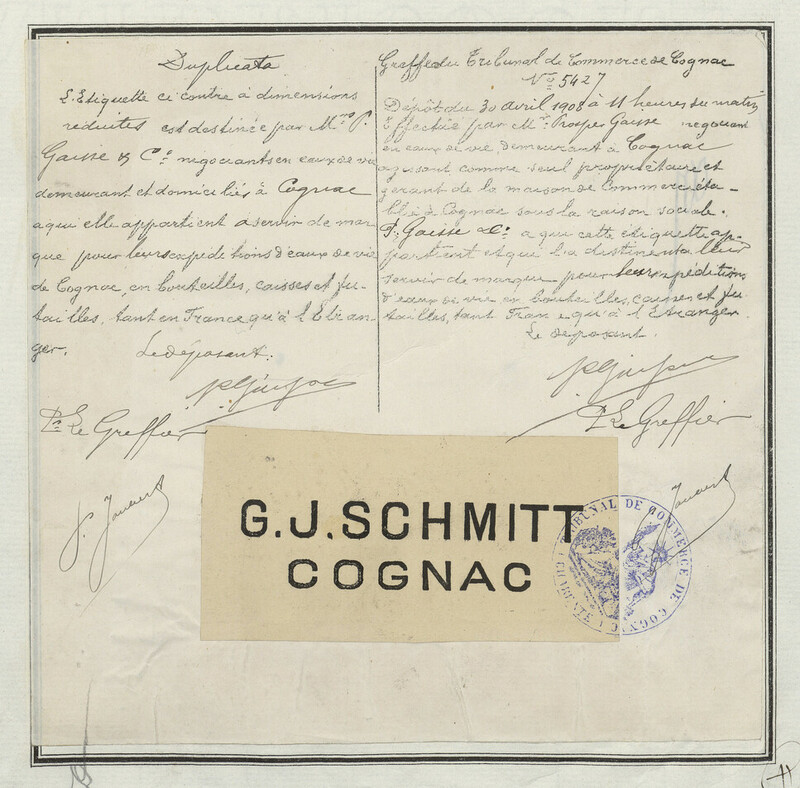 Duplicata
L'Etiquette ci contre à dimensions
réduites est destinée par Mrs P.
Gaisse & Cie négociants en eaux de vie
demeurant et domiciliés à Cognac
a qui elle appartient a servir de mar-
que pour leurs expéditions d'eaux de vie
de Cognac, en bouteilles, caisses et fu-
tailles, tant en France qu'à l'Etran-
ger.
Le déposant.
Pr Le Greffier
Greffe du Tribunal de Commerce de Cognac
No 5427
Dépôt du 30 avril 1908 à 11 heures du matin
Effectué par Mr Prosper Gaisse négociant
en eaux de vie, demeurant à Cognac
agissant comme seul propriétaire et
gérant de la maison de Commerce éta-
blie à Cognac sous la raison sociale.
P. Gaisse & Cie a qui cette etiquette ap-
partient et qui l'a destinent a leur
servir de marque pour leurs expéditions
d'eaux de vie en bouteilles, caisses et fu-
tailles, tant France qu'à l'Etranger.
Le déposant.
Pr Le Greffier
G.J.SCHMITT
COGNAC
TRIBUNAL DE COMMERCE DE COGNAC